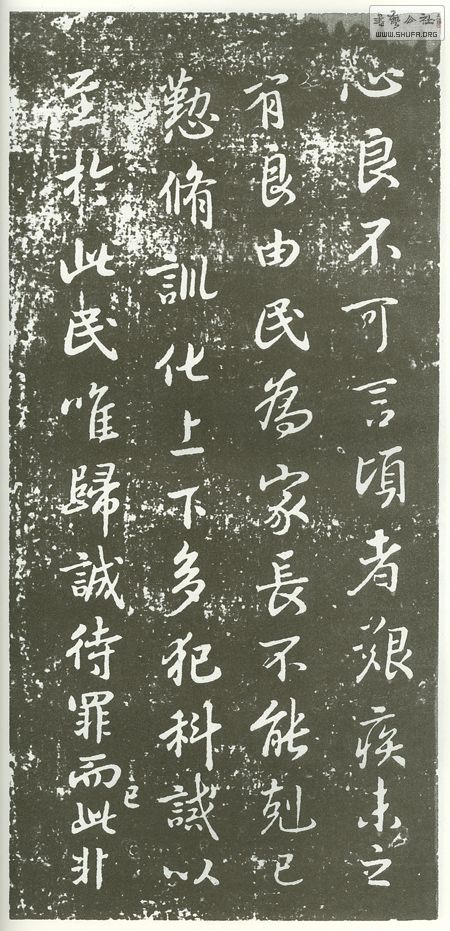 心良不可言頃者艱疾未之
有良由民為家長不能剋己
懃脩訓化上下多犯科誡以
至於此民唯歸誠待罪而此非
已
書艺公社
WWW.SHUFA.ORG